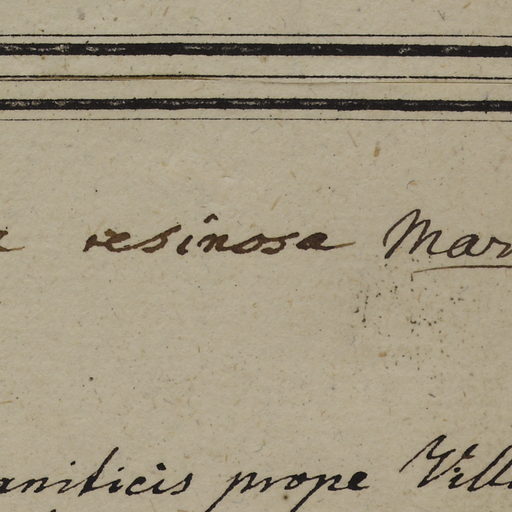 resinosa Mar
aniticis prope Vill